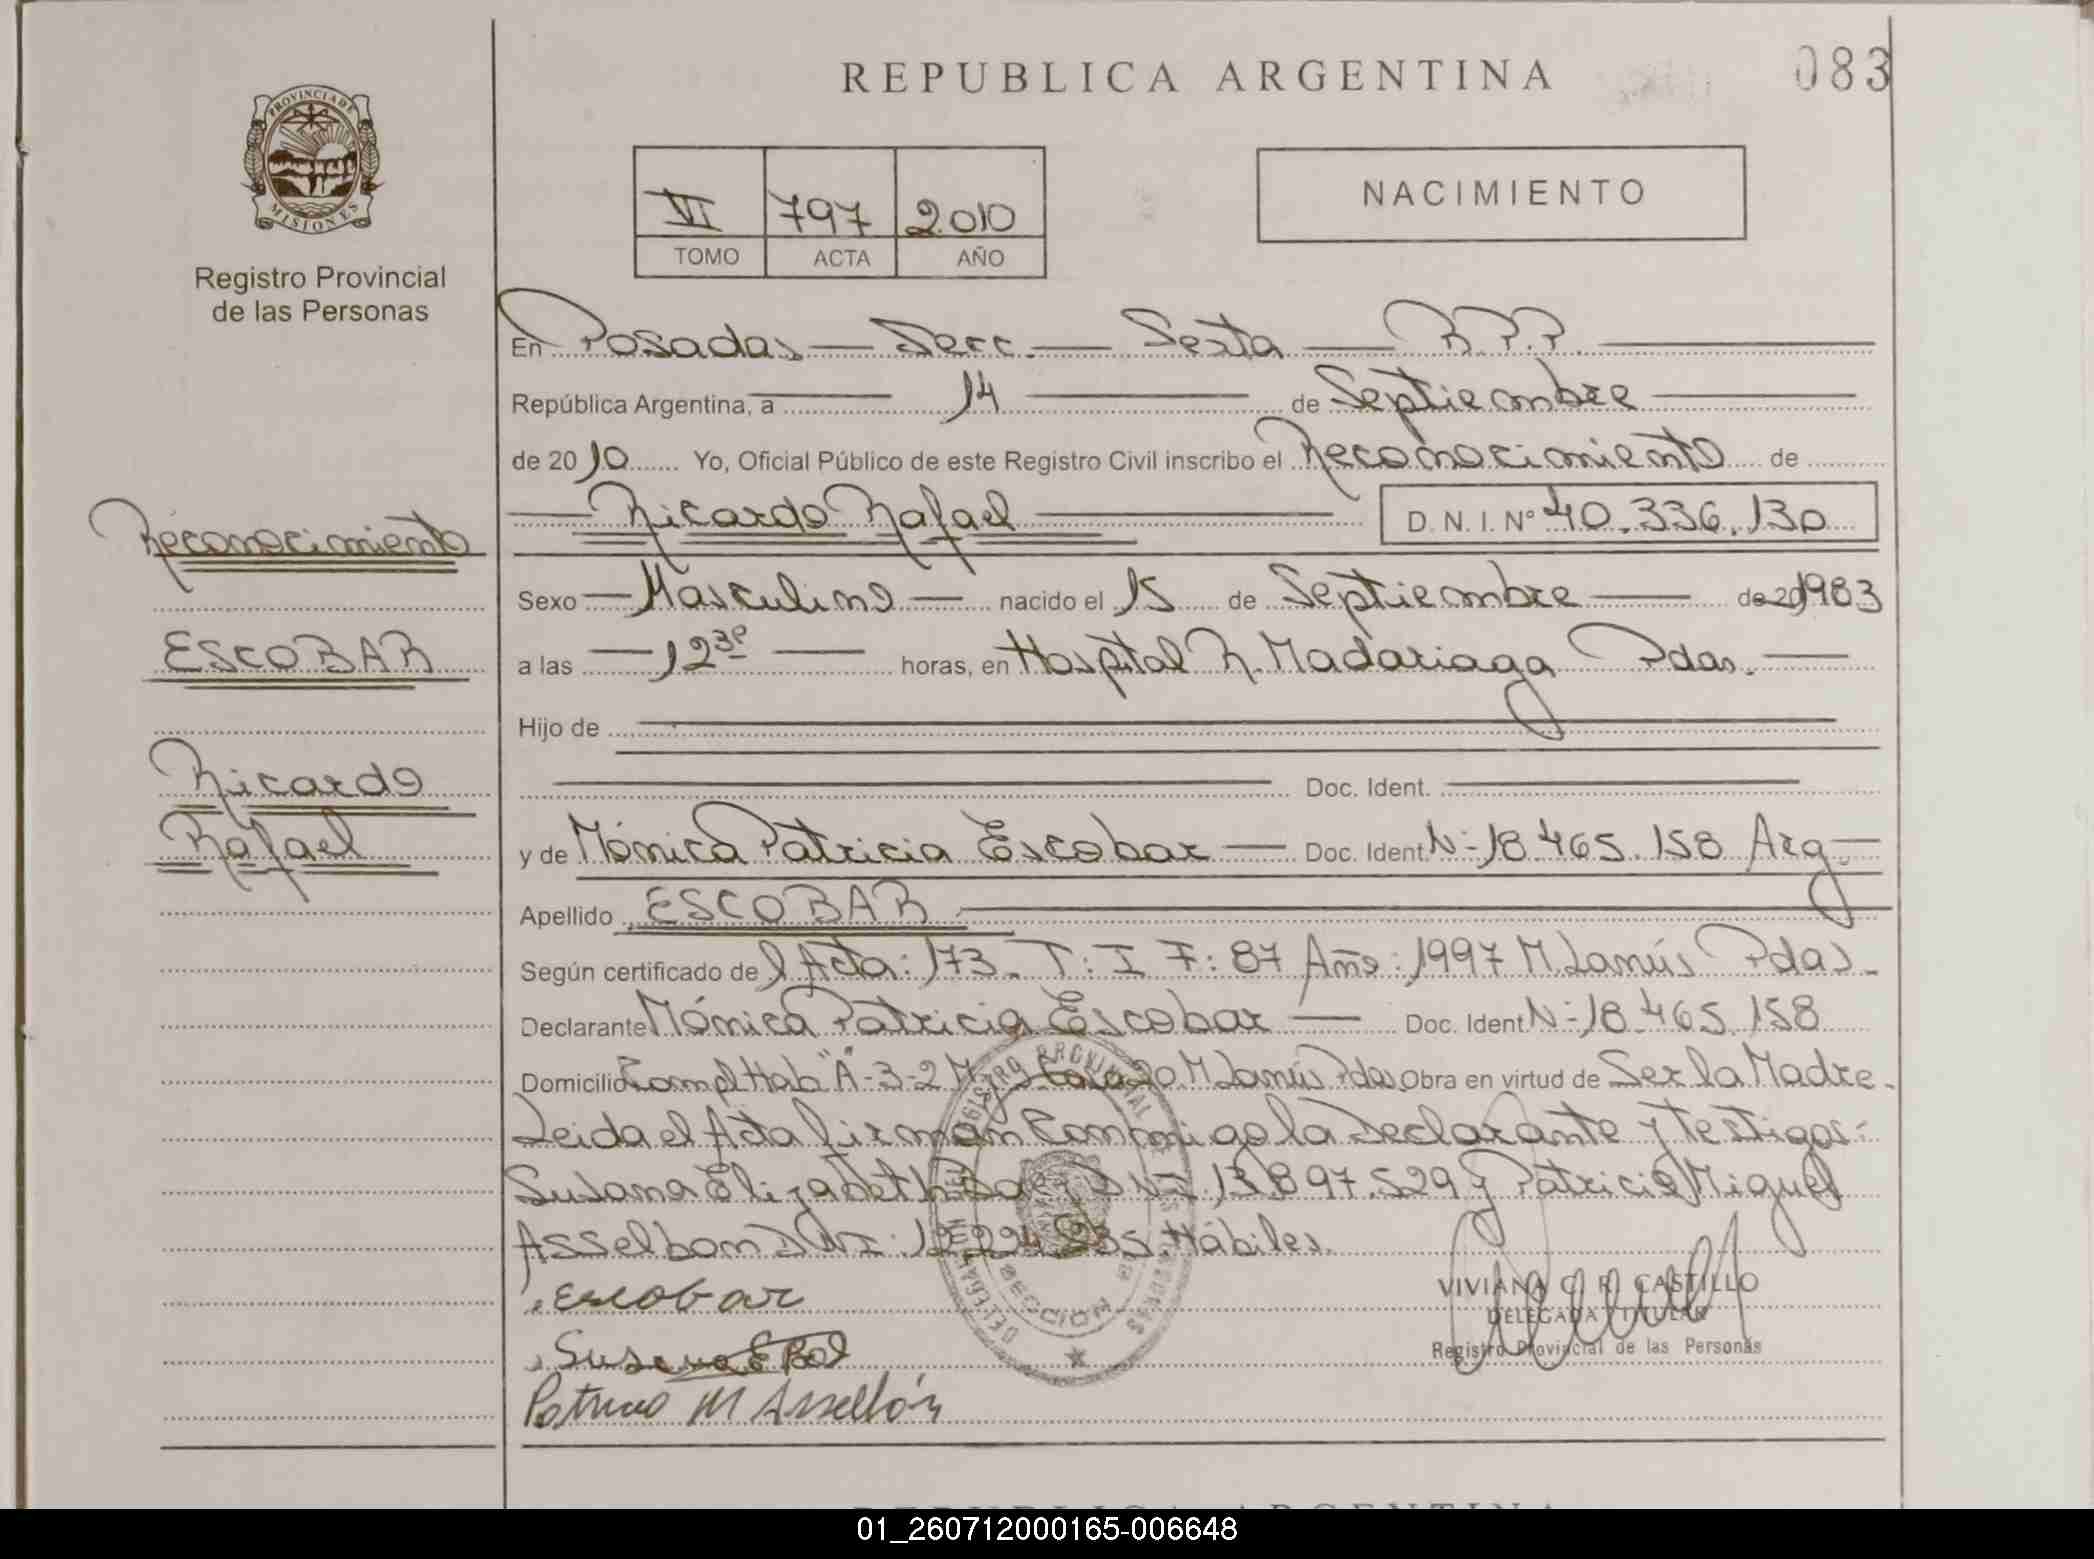 REPUBLICA ARGENTINA
083
PROVINCIA DE
MISIONES
Registro Provincial
de las Personas
VI 797 2.010
TOMO ACTA AÑO
NACIMIENTO
En Posadas Secc. Sexta R.P.P.
República Argentina, a 14 de Septiembre
de 2010 Yo, Oficial Público de este Registro Civil inscribo el Reconocimiento de
Ricardo Rafael D. N. I. Nº 40.336.130
Reconocimiento
Sexo Masculino nacido el 15 de Septiembre de 20 1983
ESCOBAR
a las 12 30 horas, en Hospital R. Madariaga Pdas.
Hijo de
Ricardo
Doc. Ident.
Rafael
y de Mónica Patricia Escobar Doc. Ident. Nº 18.465.158 Arg.
Apellido ESCOBAR
Según certificado del Acta: 173. T: I F: 87 Año: 1997 M. Lanús Pdas.
Declarante Mónica Patricia Escobar Doc. Ident Nº 18.465.158
Domicilio Compl Hab "A"-3-2 Casa 20 M Lanús Pdas Obra en virtud de Ser la Madre.
Leida el Acta firman Conmigo la Declarante y testigos:
Susana Elizabeth DNI 13.897.529 y Patricio Miguel
Asselbom DNI: Hábiles.
Escobar
Susana E
Patricio M Asselbón
REGISTRO PROVINCIAL
SECCION
VIVIANA C. R. CASTILLO
DELEGADA TITULAR
Registro Provincial de las Personas
REPUBLICA ARGENTINA
01_260712000165-006648